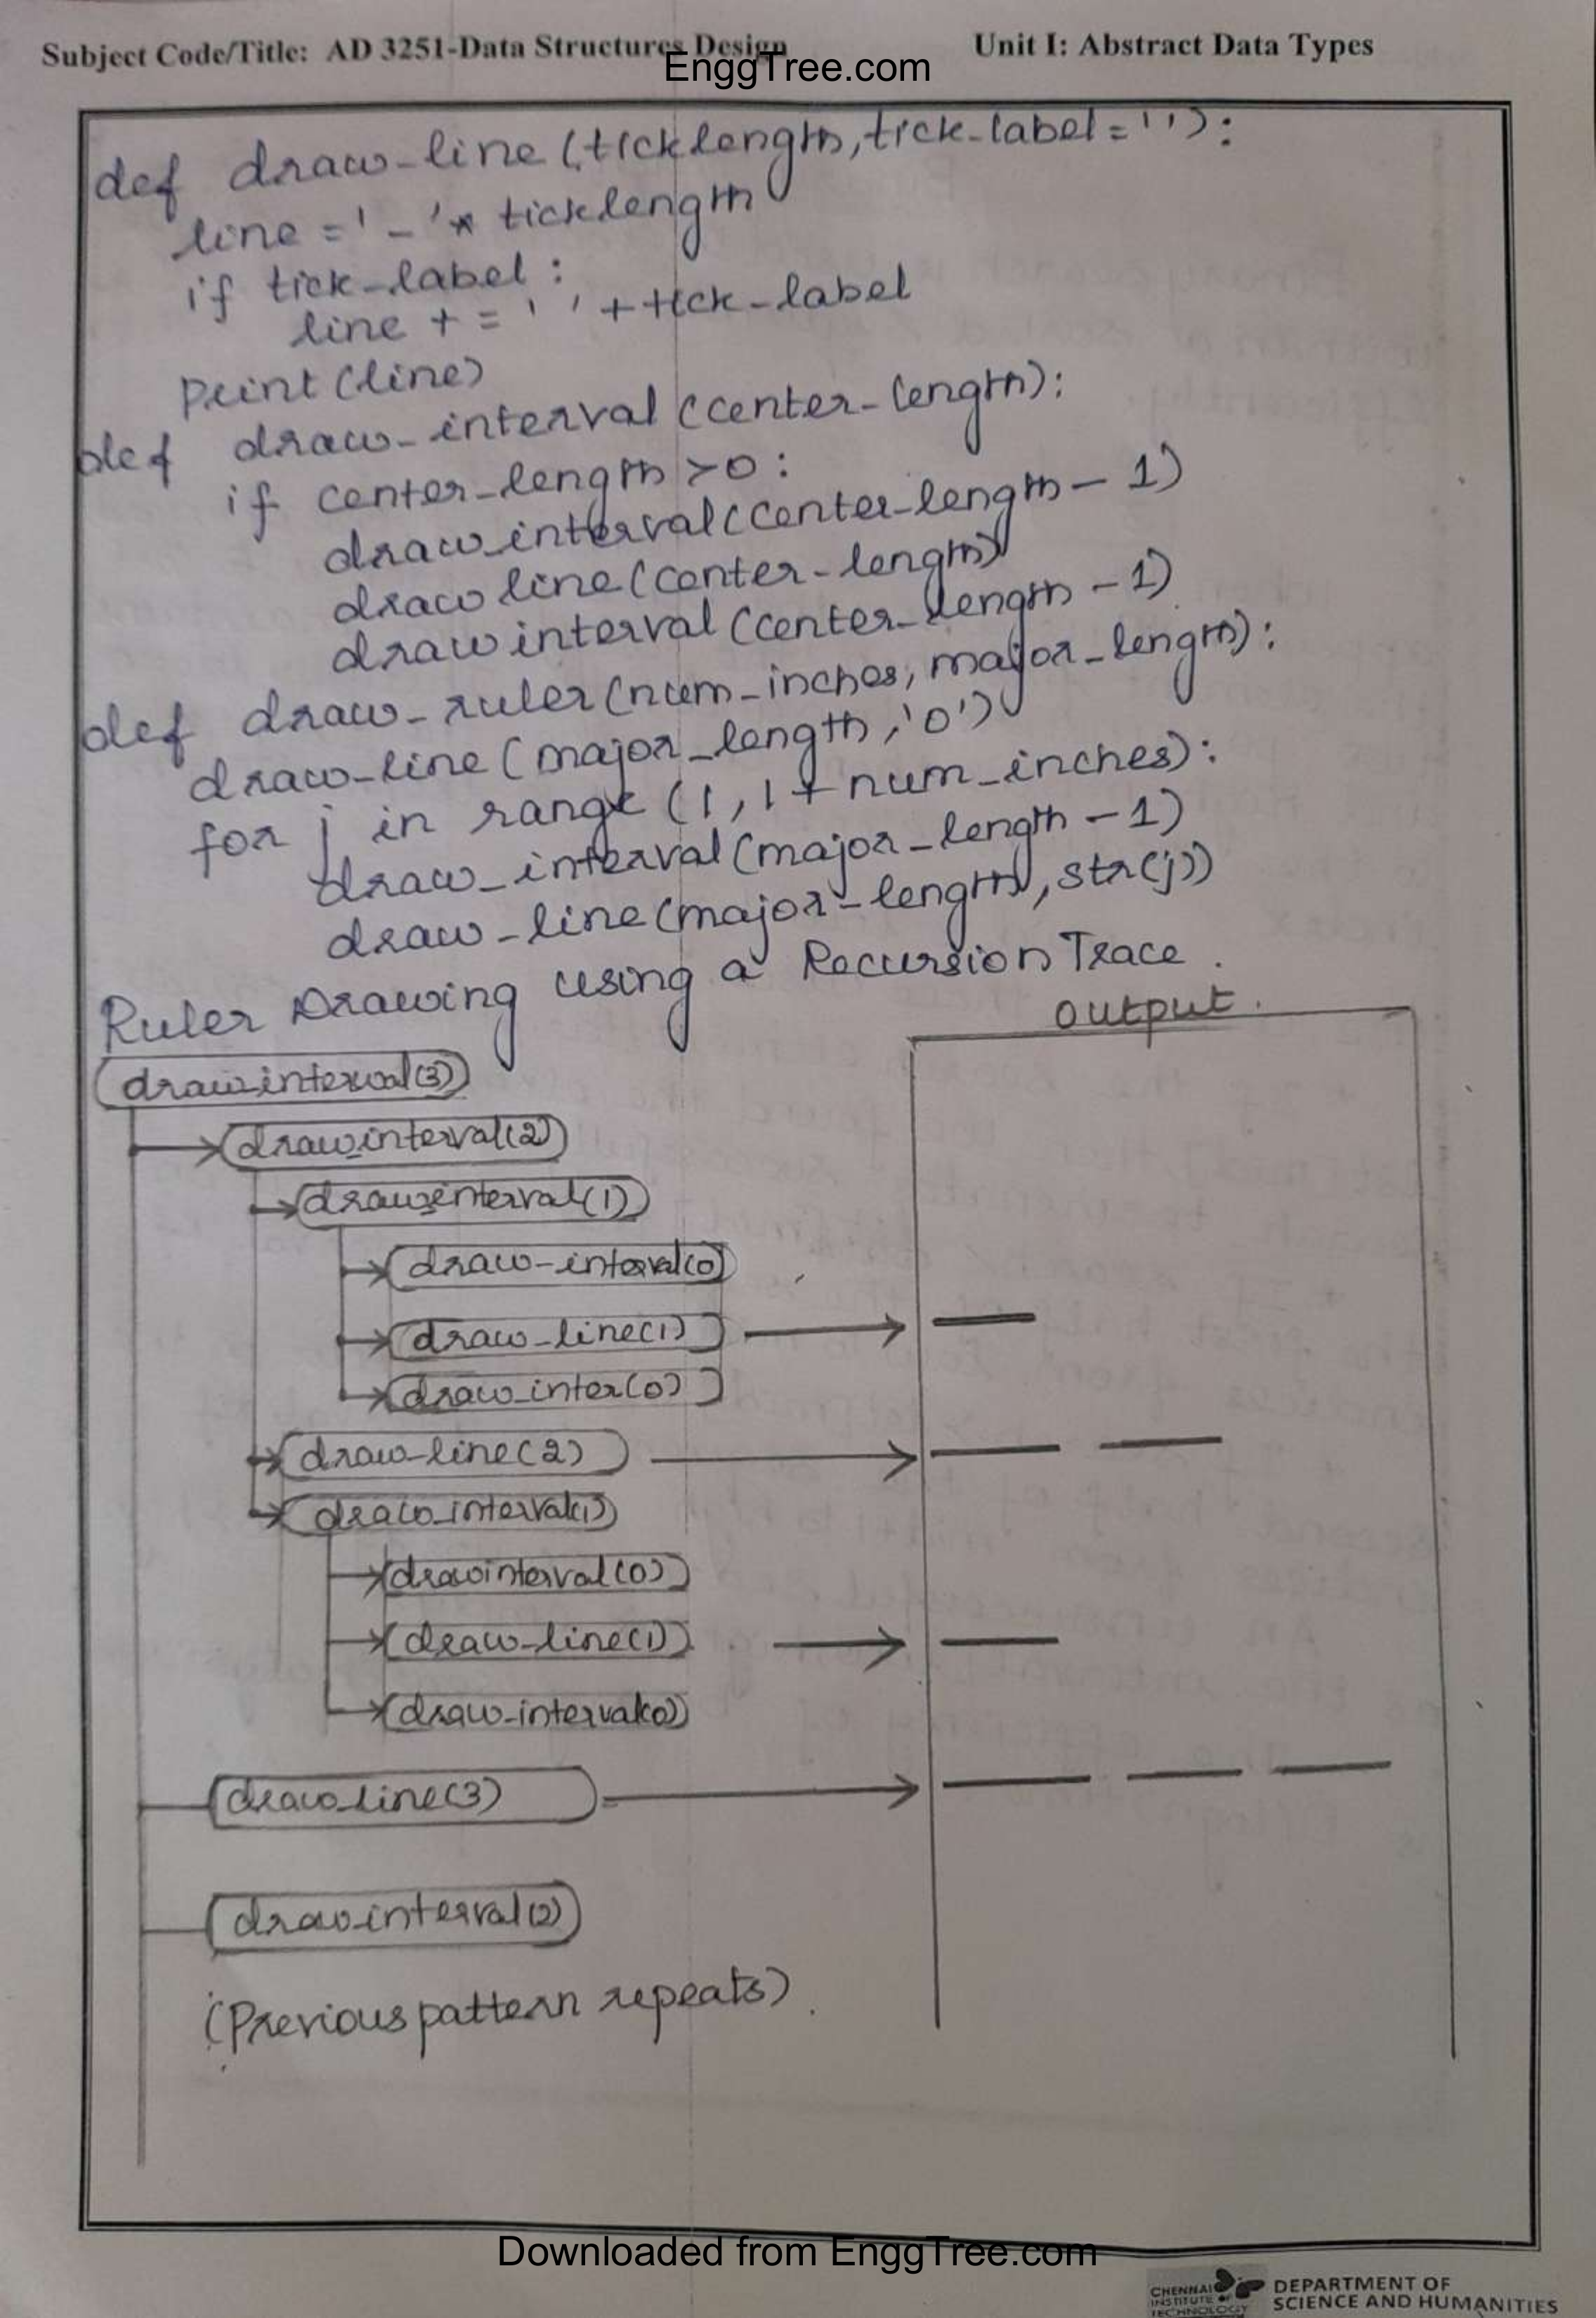 Subject Code/Title: AD 3251-Data Structures Design Unit I: Abstract Data Types
EnggTree.com
def draw-line (ticklength, tick-label = ''):
line = '-' * ticklength
if tick-label :
line + = ' ' + tick-label
Print (line)
def draw-interval (center-length):
if center-length > 0 :
draw_interval (center-length - 1)
draw line (center-length)
draw interval (center-length - 1)
def draw-ruler (num-inches, major-length):
draw-line (major_length, '0')
for j in range (1, 1 + num_inches):
draw_interval (major-length - 1)
draw-line (major-length, str(j))
Ruler Drawing using a Recursion Trace .
output .
draw_interval(3)
draw_interval(2)
draw_interval(1)
draw-interval(0)
draw-line(1)
draw_inter(0)
draw-line(2)
draw_interval(1)
drawinterval(0)
draw-line(1)
draw-interval(0)
draw_line(3)
draw_interval(2)
(Previous pattern repeats) .
Downloaded from EnggTree.com
CHENNAI
INSTITUTE OF
TECHNOLOGY
DEPARTMENT OF
SCIENCE AND HUMANITIES